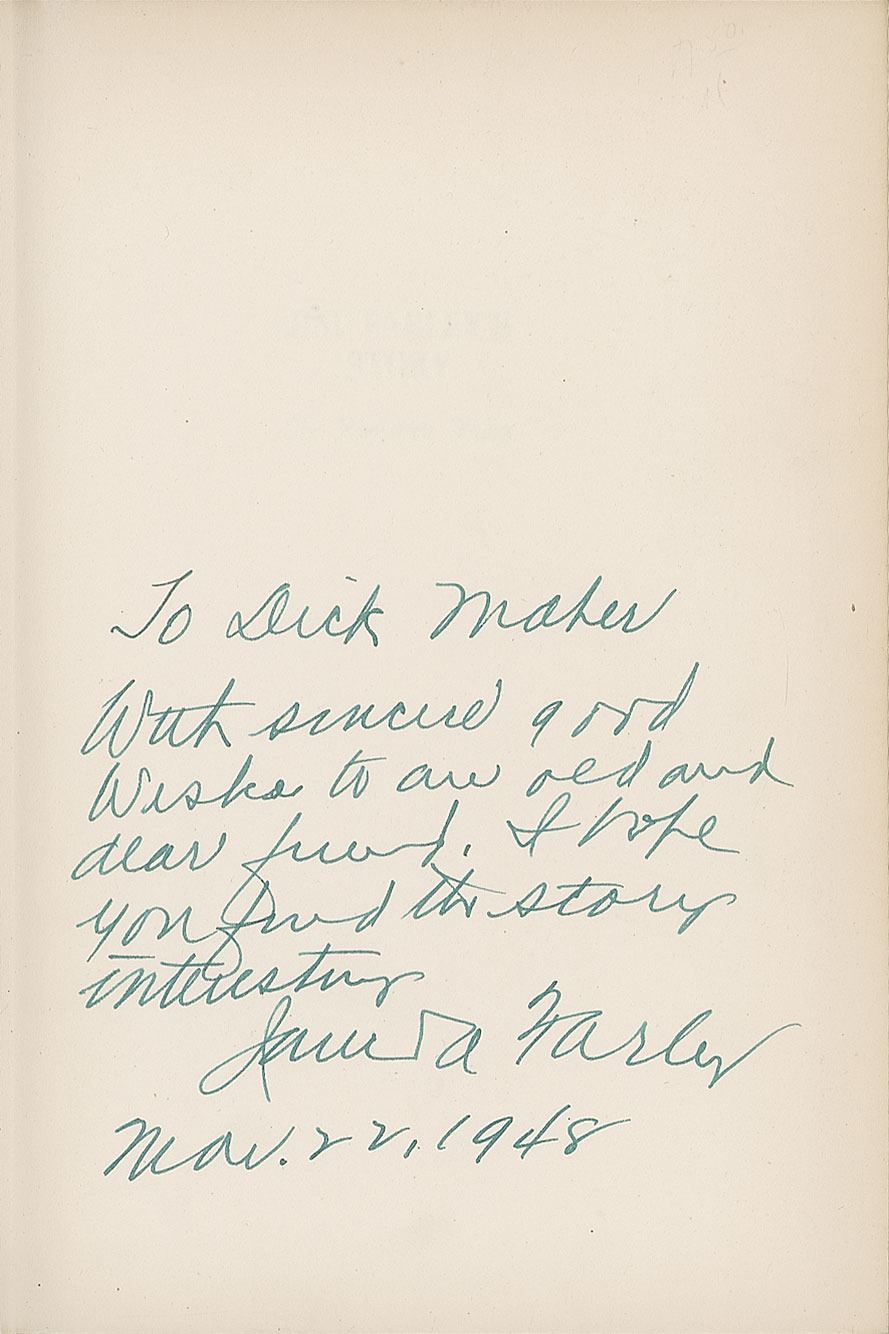 To Dick Maher
With sincere good
Wishes to an old and
dear friend. I hope
you find the story
interesting
James A Farley
Nov. 22, 1948